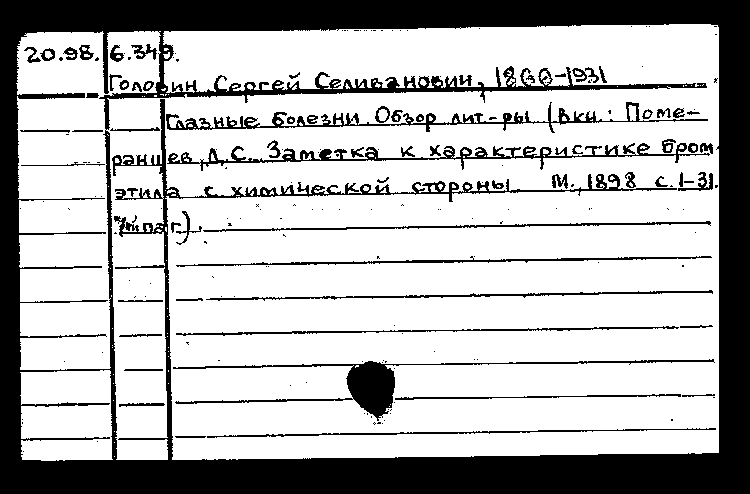 20.98. 6.349.
Головин Сергей Селиванович, 1866-1931
Глазные болезни. Обзор лит-ры (в кн.: Поме-
ранцев, Д. С. Заметка к характеристике бром-
этила с химической стороны М., 1898 с. 1-31.
паг).